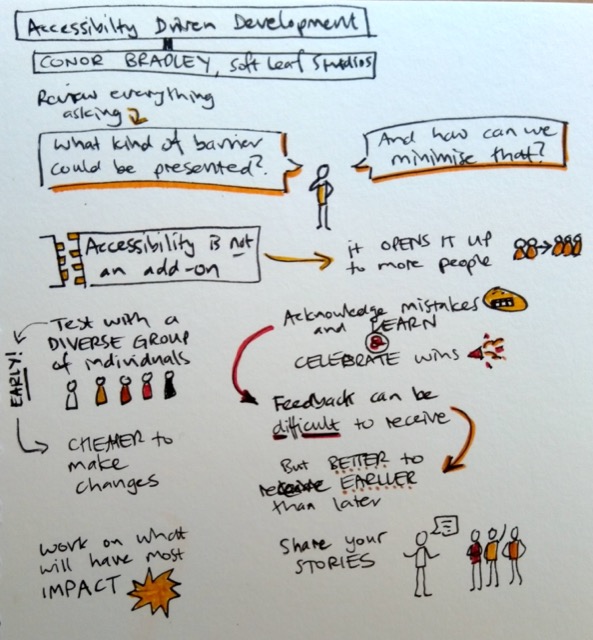 Accessibilty Driven Development
CONOR BRADLEY, Soft Leaf Studios
Review everything
asking
What kind of barrier
could be presented?
And how can we
minimise that?
Accessibility is not
an add-on
it OPENS IT UP
to more people
Acknowledge mistakes
and LEARN
&
CELEBRATE wins
Test with a
DIVERSE GROUP
of individuals
EARLY!
CHEAPER to
make
changes
Feedback can be
difficult to receive
But BETTER to
receive EARLIER
than later
Work on what
will have most
IMPACT
Share your
STORIES